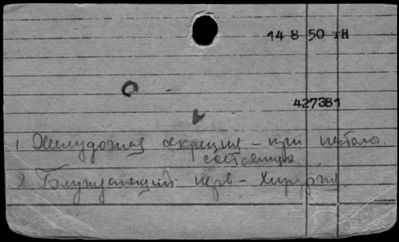 14 8 50 TH
427381
1. Желудочная секреция – при патол.
состояниях
2. Блуждающий нерв – Хирургия